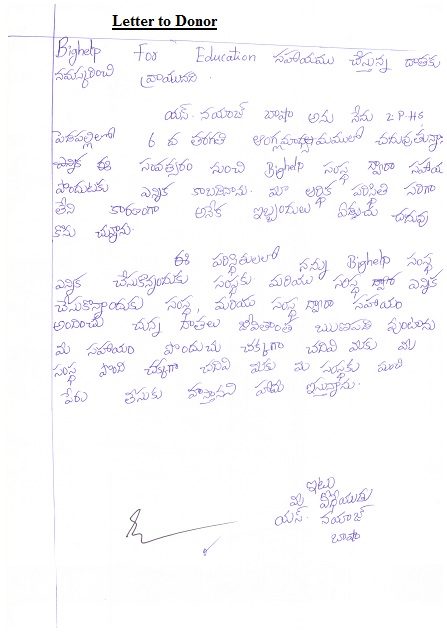 Letter to Donor
Bighelp For Education సహాయము చేస్తున్న దాతకు
నమస్కరించి వ్రాయునది.
యస్. నయాజ్ బాషా అను నేను Z.P.H.S
6 వ తరగతి ఆంగ్లమాధ్యమములో చదువుతున్నా
ఈ సంవత్సరం నుంచి Bighelp సంస్థ ద్వారా సహాయ
పొందుటకు ఎన్నిక కాబడినాను. మా ఆర్థిక పరిస్థితి సరిగా
లేని కారణంగా అనేక ఇబ్బందులు చదువు
కొను చున్నాను.
ఈ పరిస్థితులలో నన్ను Bighelp సంస్థ
ఎన్నిక చేసుకొన్నందుకు సంస్థకు మరియు సంస్థ ద్వారా ఎన్నిక
చేసుకొన్నందుకు సంస్థ, మరియు సంస్థ ద్వారా సహాయం
అందించు చున్న దాతలు జీవితాంతం ఋణపడి వుంటాను
మీ సహాయం పొందుచు చక్కగా చదివి మీకు మీ
సంస్థ చక్కగా చదివి మీకు మీ సంస్థకు మంచి
పేరు తీసుకు వస్తానని హామీ ఇస్తున్నాను.
ఇట్లు
మీ విధేయుడు
యస్. నయాజ్
బాషా